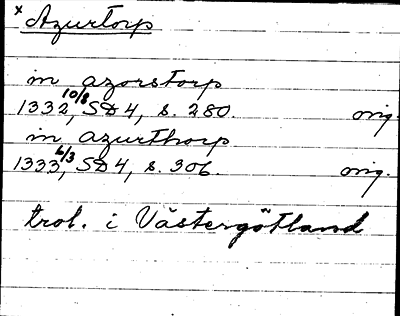 x Azurtorp
in azorstorp
1332 10/8, SD 4, s. 280. orig.
in azurthorp
1333 6/3, SD 4, s. 306. orig.
trol. i Västergötland